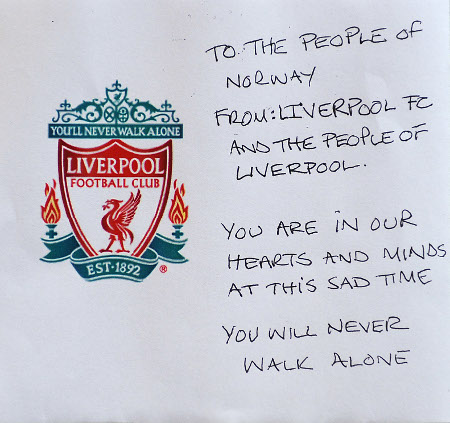 YOU'LL NEVER WALK ALONE
LIVERPOOL
FOOTBALL CLUB
EST·1892
®
TO THE PEOPLE OF
NORWAY
FROM: LIVERPOOL FC
AND THE PEOPLE OF
LIVERPOOL.
YOU ARE IN OUR
HEARTS AND MINDS
AT THIS SAD TIME
YOU WILL NEVER
WALK ALONE